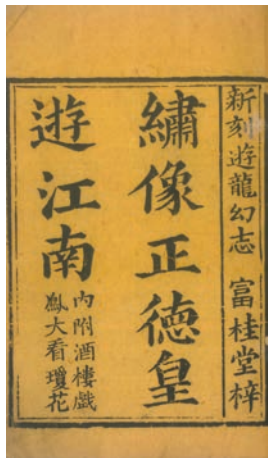 新刻遊龍幻志　富桂堂梓
繡像正德皇
遊江南
內附酒樓戲
鳳大看瓊花